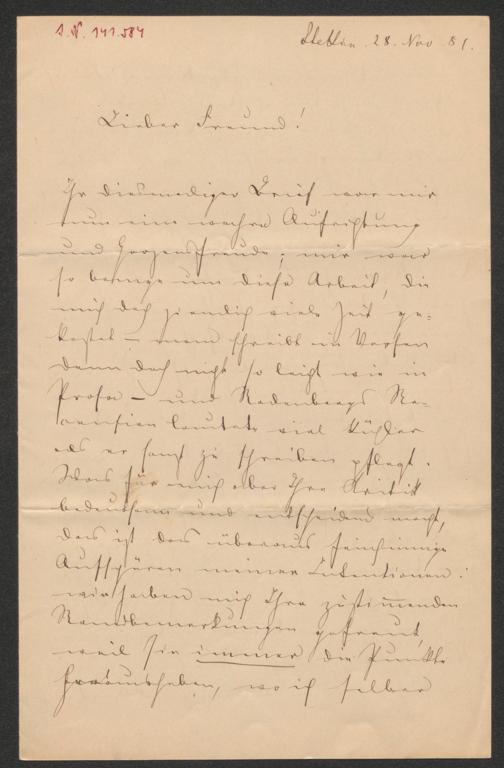 I. N. 141.584
Stettin. 28. Nov 81.
Lieber Freund!
Ihr diesmaliger Brief war mir
nun eine wahre Aufrichtung
und Herzensfreude; mir war
so bange um diese Arbeit, die
mich doch ziemlich viele Zeit ge-
kostet – man schreibt in Versen
denn doch nicht so leicht wie in
Prosa – und Rodenbergs Re-
censien lautete viel kühler
als er sonst zu schreiben pflegt.
Was für mich aber Ihre Kritik
bedeutsam und entscheidend macht,
das ist das überaus feinsinnige
Aufspüren meiner Intentionen:
wie haben mich Ihre zustimmenden
Randbemerkungen gefreut,
weil sie immer die Punkte
herausheben, wo ich selber